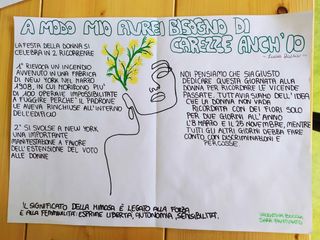 A MODO MIO AVREI BISOGNO DI
CAREZZE ANCH'IO
LA FESTA DELLA DONNA SI
CELEBRA IN 2 RICORRENZE
1° RIEVOCA UN INCENDIO
AVVENUTO IN UNA FABRICA
DI NEW YORK NEL MARZO
1908, IN CUI MORIRONO PIU'
DI 100 OPERAIE IMPOSSIBILITATE
A FUGGIRE PERCHE' IL PADRONE
LE AVEVA RINCHIUSE ALL'INTERNO
DELL'EDIFICIO
2° SI SVOLSE A NEW YORK,
UNA IMPORTANTE
MANIFESTAZIONE A FAVORE
DELL'ESTENSIONE DEL VOTO
ALLE DONNE
NOI PENSIAMO CHE SIA GIUSTO
DEDICARE QUESTA GIORNATA ALLA
DONNA PER RICORDARE LE VICENDE
PASSATE. TUTTAVIA SIAMO DELL'IDEA
CHE LA DONNA NON VADA
RICORDATA CON DEI FIORI SOLO
PER DUE GIORNI ALL'ANNO
L'8 MARZO E IL 25 NOVEMBRE, MENTRE
TUTTI GLI ALTRI GIORNI DEBBA FARE
CONTO CON DISCRIMINAZIONI E
PERCOSSE
IL SIGNIFICATO DELLA MIMOSA È LEGATO ALLA FORZA
E ALLA FEMMINILITÀ: ESPRIME LIBERTÀ, AUTONOMIA, SENSIBILITÀ.